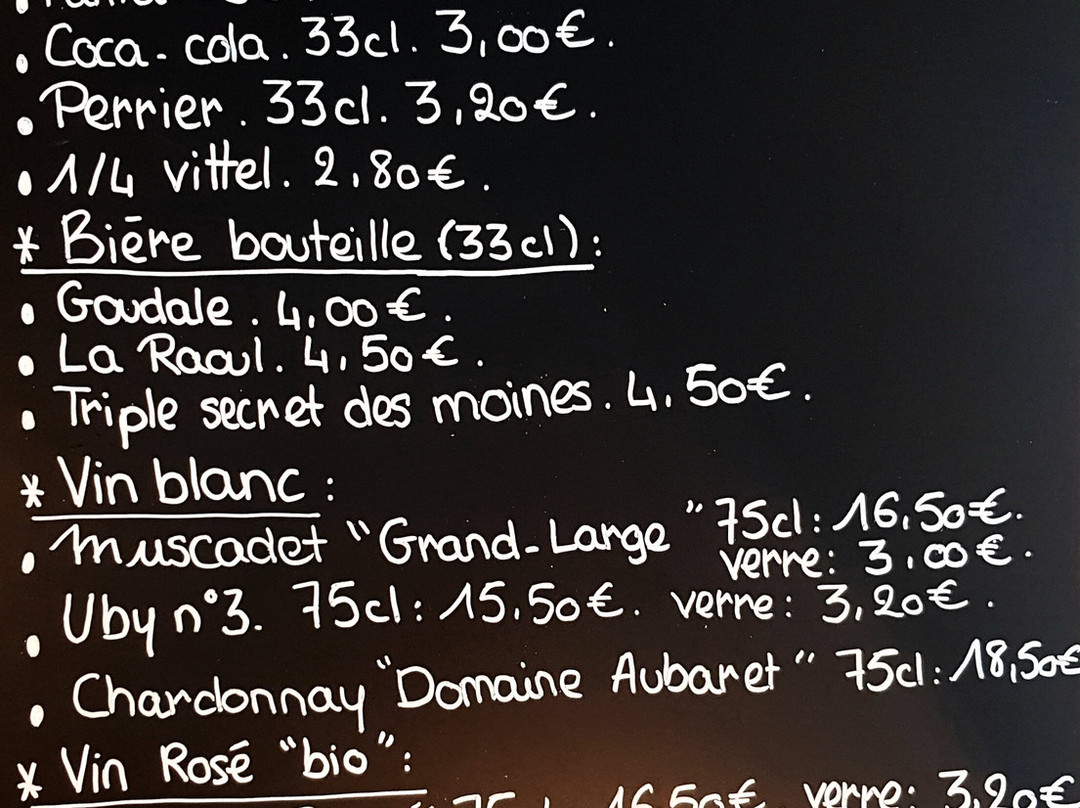 • Coca-cola. 33cl. 3,00€.
• Perrier. 33cl. 3,20€.
• 1/4 vittel. 2,80€.
* Bière bouteille (33cl):
• Goudale. 4,00€.
• La Raoul. 4,50€.
• Triple secret des moines. 4,50€.
* Vin blanc:
• Muscadet "Grand-Large" 75cl: 16,50€.
verre: 3,00€.
• Uby n°3. 75cl: 15,50€. verre: 3,20€.
• Chardonnay "Domaine Aubaret" 75cl: 18,50€
* Vin Rosé "bio":
16,50€ verre: 3,20€